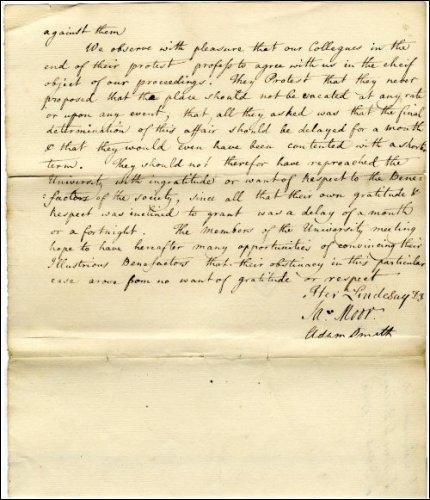 against them
We observe with pleasure that our Collegues in the
end of their protest profess to agree with us in the cheif
object of our proceedings. They Protest that they never
proposed that the place should not be vacated at any rate
or upon any event, that all they asked was that the final
determination of this affair should be delayed for a month
& that they would even have been contented with a shorter
term. They should not therefor have reproached the
University with ingratitude or want of respect to the Bene-
:factors of the society, since all that their own gratitude &
respect was inclined to grant was a delay of a month
or a fortnight. The Members of the University meeting
hope to have hereafter many opportunities of convincing their
Illustrious Benefactors that their obstinacy in this particular
case arose from no want of gratitude or respect
Lindesay
Ja. Moor.
Adam Smith